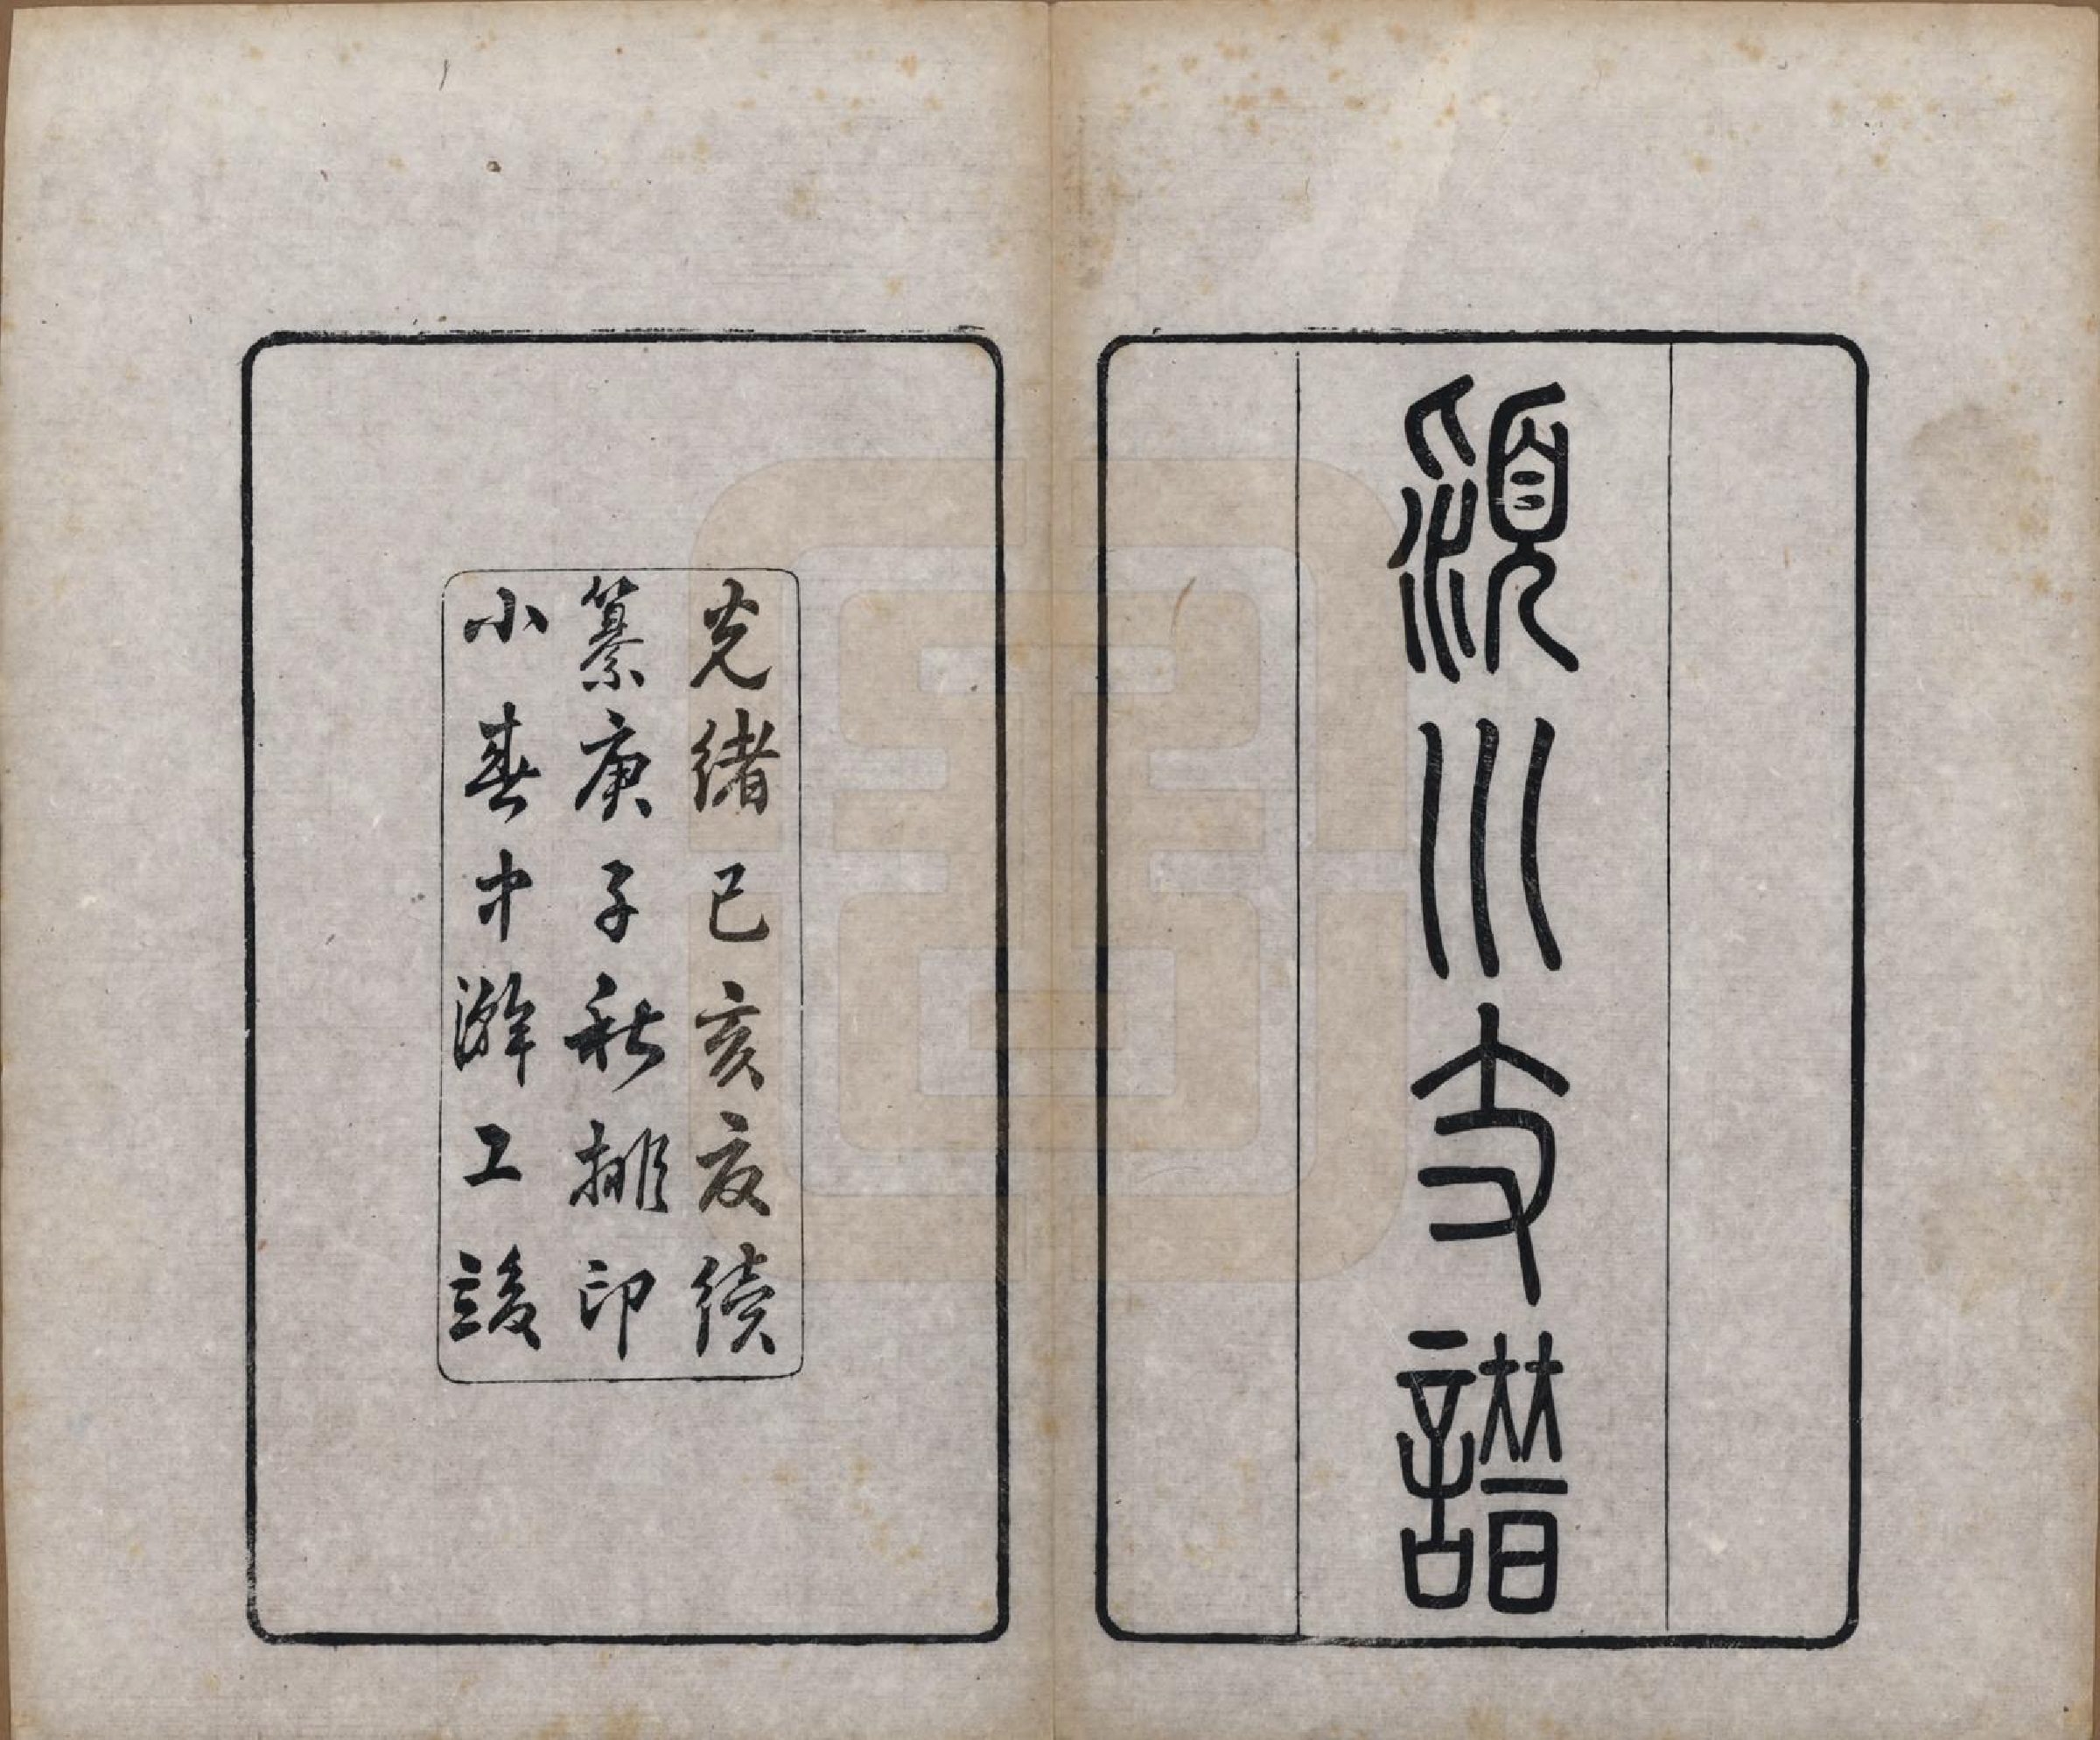 潁川支譜
光緒己亥夏續
纂庚子秋排印
小春中澣工竣